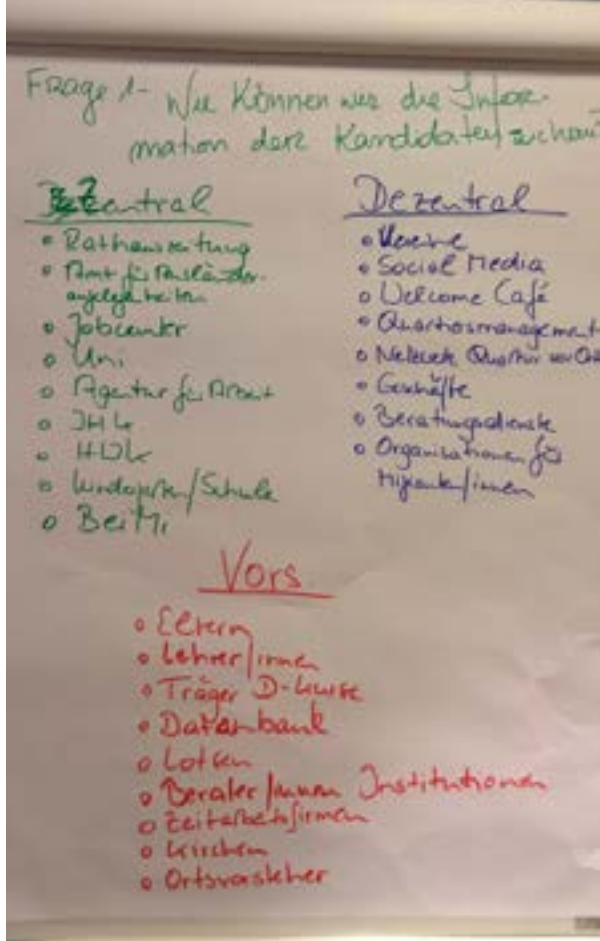 Frage 1- Wie können wir die Infor-
mation der Kandidaten
Zentral
• Rathauszeitung
• Amt für Ausländer-
angelegenheiten
• Jobcenter
• Uni
• Agentur für Arbeit
• IHK
• HWK
• Kindergarten/Schule
• BeiMi
Dezentral
• Vereine
• Social Media
• Welcome Café
• Quartiersmanagement
• Netzwerk Quartier vor Ort
• Geschäfte
• Beratungsdienste
• Organisationen für
Migranten/innen
Vors
• Eltern
• Lehrer/innen
• Träger D-Kurse
• Datenbank
• Lotsen
• Berater/innen Institutionen
• Zeitarbeitsfirmen
• Kirchen
• Ortsvorsteher